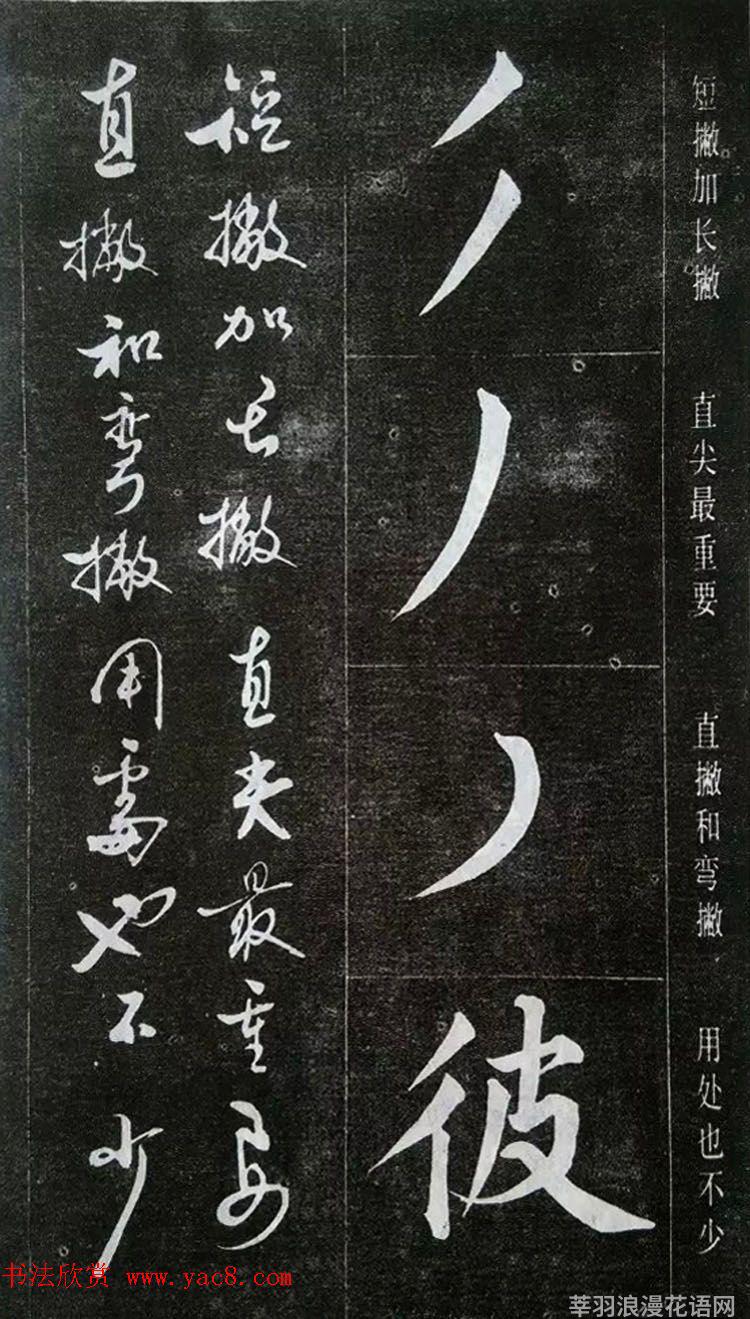 短撇加长撇 直尖最重要 直撇和弯撇 用处也不少
丿丿
丿
丿
彼
短撇加长撇 直尖最重要
直撇和弯撇 用處也不少
书法欣赏 www.yac8.com
莘羽浪漫花语网